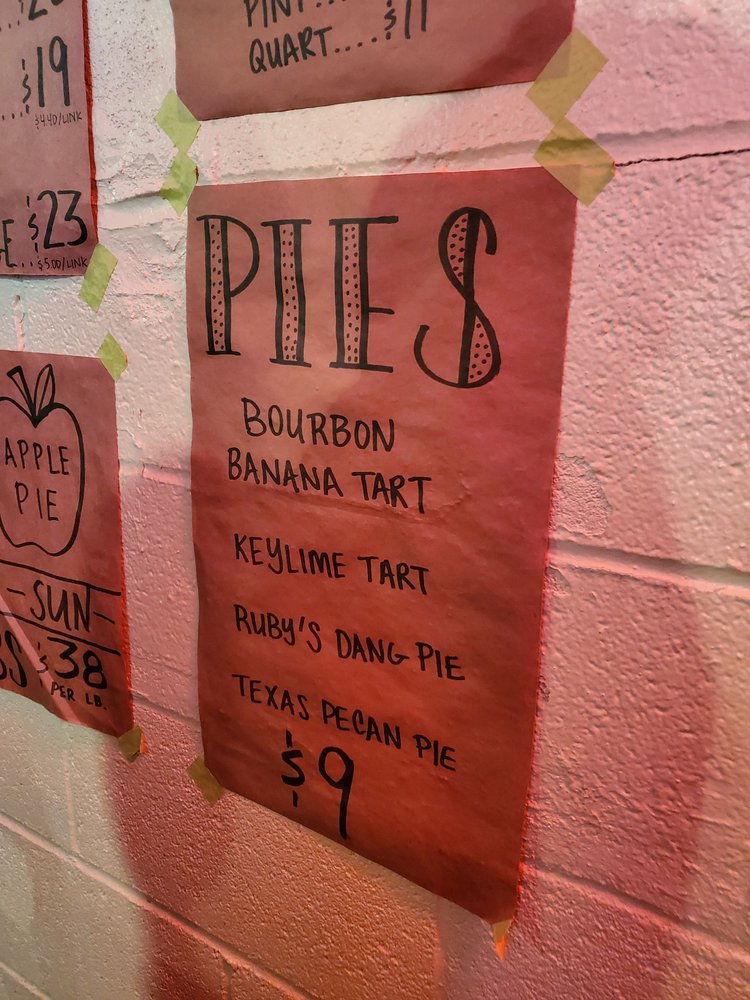 $19
$4.40/LINK
$23
$5.00/LINK
APPLE
PIE
-SUN-
$38
PER LB.
PINT....
QUART....$11
PIES
BOURBON
BANANA TART
KEYLIME TART
RUBY'S DANG PIE
TEXAS PECAN PIE
$9